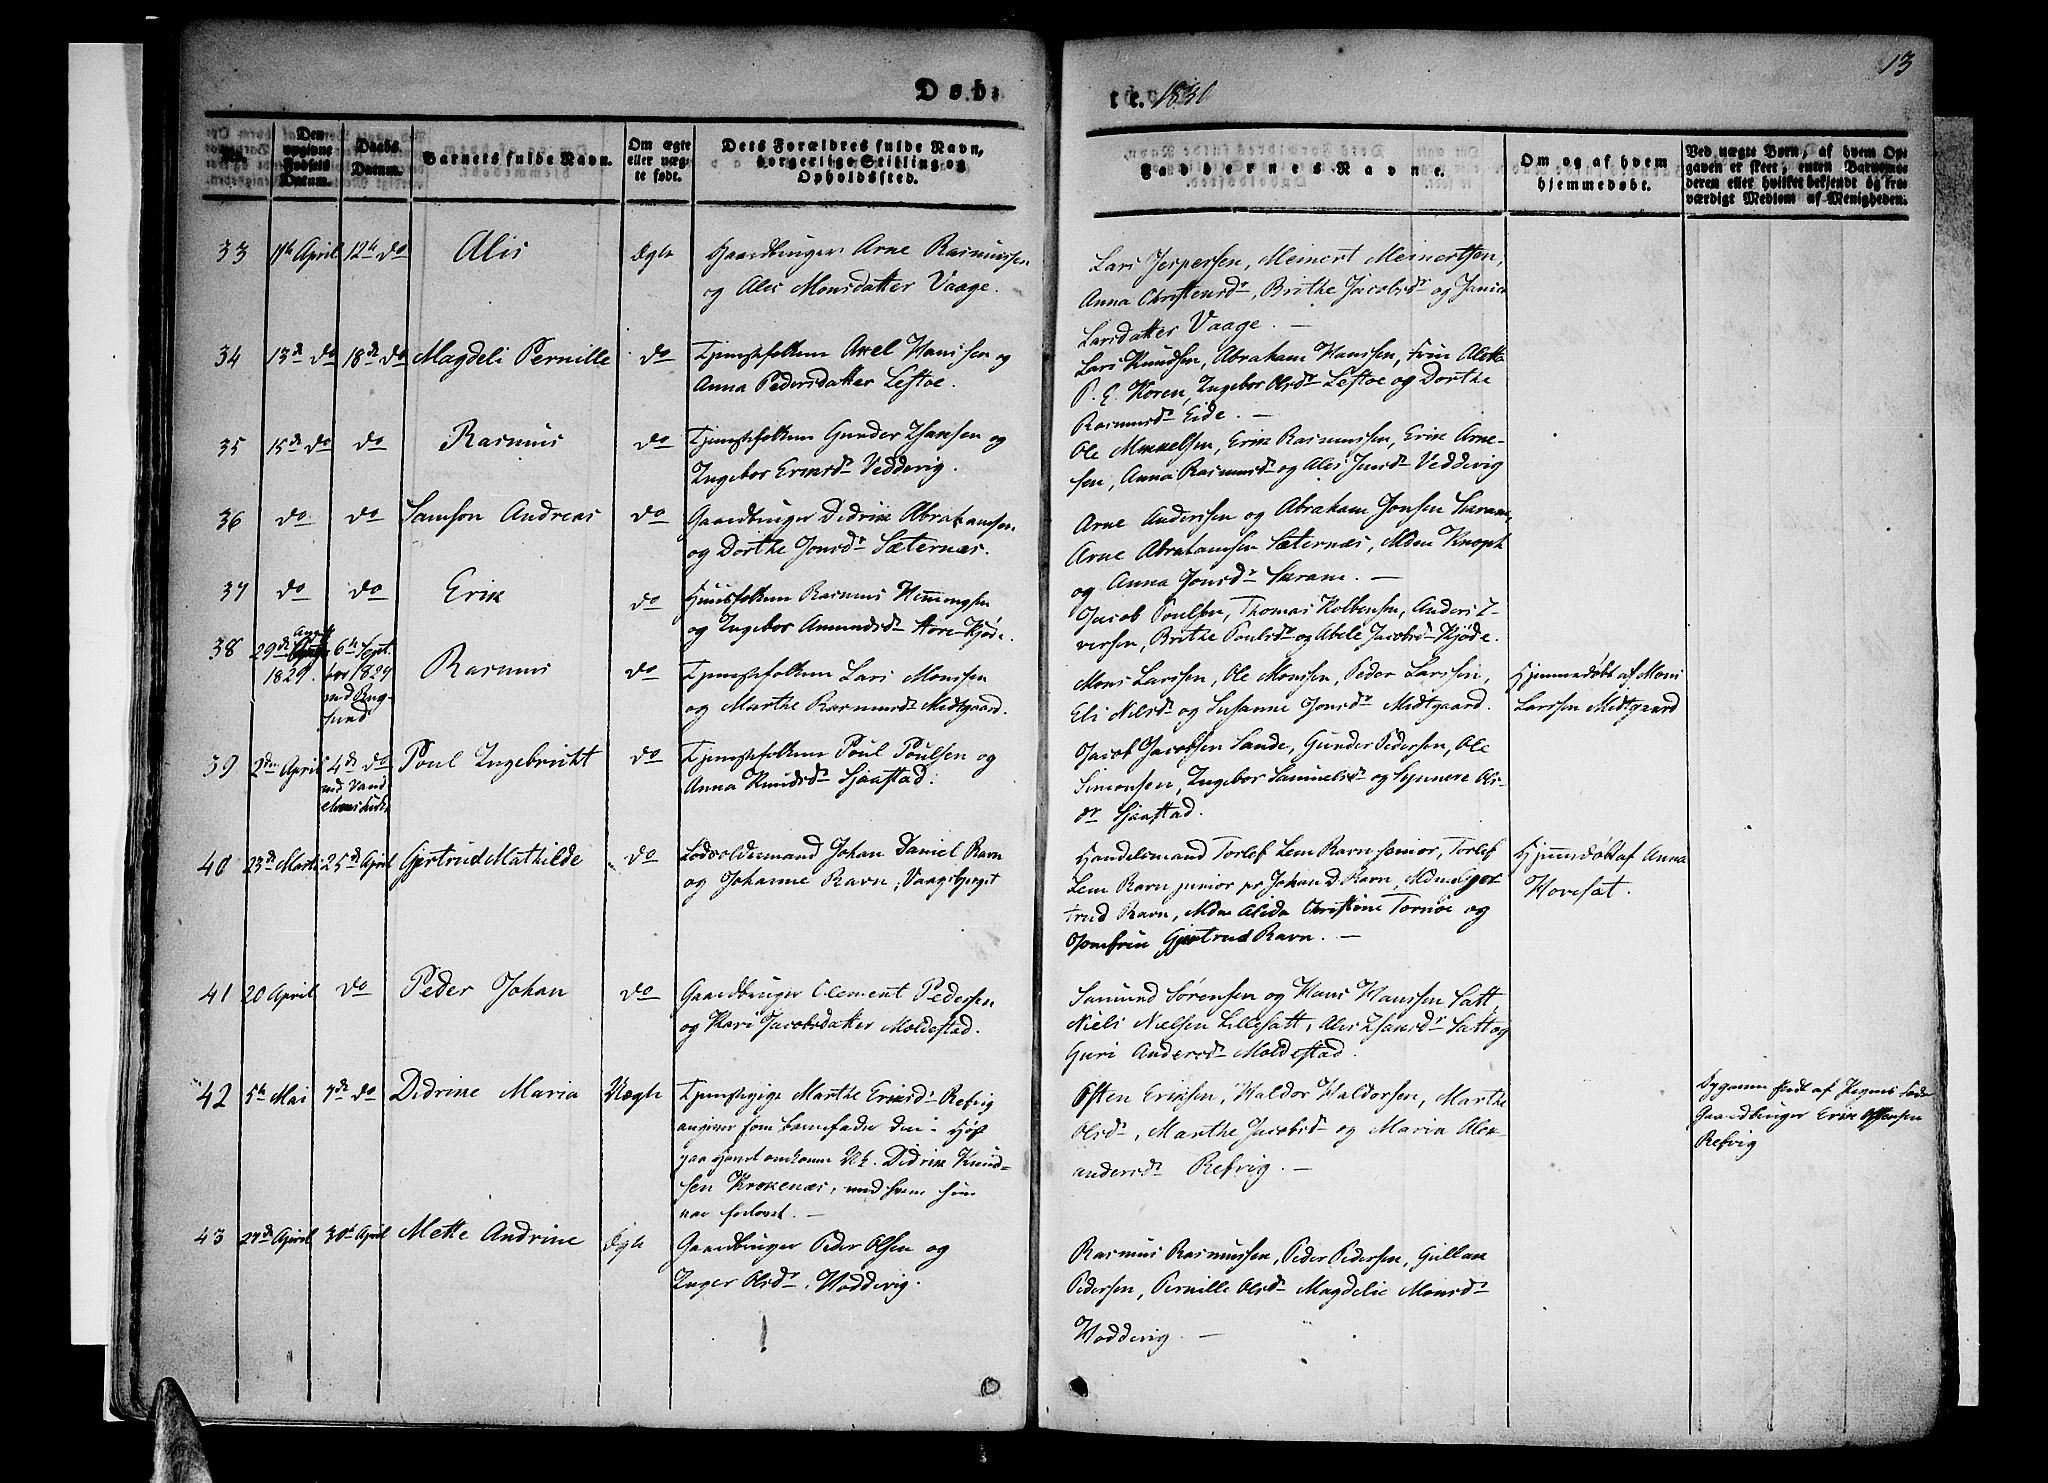 Døb:
te. 1831
13
No.
Den opgivne Fødsels Datum.
Daabs Datum.
Barnets fulde Navn.
Om ægte eller uægte født.
Dets Forældres fulde Navn, borgerlige Stilling og Opholdssted.
Faddernes Navne.
Om og af hvem hjemmedøbt.
Ved uægte Børn, af hvem Opgaven er skeet, enten Barnemoderen eller hvilket bekjendt og troværdigt Medlem af Menigheden.
33 April 12te do Alis Ægte Gaardbruger Arne Rasmussen
og Ales Monsdatter Vaage.
Lars Jespersen, Meinert Meinertsen,
Anna Christensdr, Brithe Jacobsdr og
Larsdatter Vaage. —
34 13de do 18de do Magdeli Pernille do Tjenestefolkene Axel Hansen og
Anna Pedersdatter Leftoe.
Lars Knudsen, Abraham Hanssen,
P. E. Koren, Ingebor Olsdr Leftoe og Dorthe
Rasmusdr Eide. —
35 15de do do Rasmus do Tjenestefolkene Gunder Hansen og
Ingebor Eriksdr Vedderig.
Ole Mikkelsen, Erik Rasmussen, Erik Arne-
sen, Anna Rasmusdr og Ales Jensdr Vedderig
36 do do Samson Andreas do Gaardbruger Didrik Abrahamsen
og Dorthe Jonsdr Sæternæs.
Arne Anderssen og Abraham Jonsen
Arne Abrahamsen Sæternæs, Mdme Knoph
og Anna Jonsdr
37 do do Erik do Huusfolkene Rasmus Hemmingsen
og Ingebor Amundsdr
Jacob Poulsen, Thomas Kolbensen, Anders I-
versen, Brithe Poulsdr og Abele Jacobsdr Kjøde.
38 29de August 1829. 6te Sept. 1829 Rasmus do Tjenestefolkene Lars Monssen
og Marthe Rasmusdr Midtgaard.
Mons Larssen, Ole Monssen, Peder Larssen,
Eli Nilsdr og Susanne Jonsdr Midtgaard.
Hjemmedøbt af Mons
Larssen Midtgaard
39 2den April 4de do Poul Ingebricht do Tjenestefolkene Poul Poulsen og
Anna Knudsdr Sjaastad.
Jacob Jacobsen Sande, Gunder Pedersen, Ole
Simonsen, Ingebor Samuelsdr og Synnere Ols-
dr Sjaastad.
40 23de Marts 25de April Gjertrud Mathilde do Lodsoldermand Johan Daniel Ravn
og Johanne Ravn, Vaagsbjerget
Handelsmand Torlef Lem Ravn senior, Torlef
Lem Ravn junior pr Johan D. Ravn, Mdme Gjer
trud Ravn, Mdme Alida Christine Tornøe og
Jomfrue Gjertrud Ravn. —
Hjemmedøbt af Anna
Hovesæt.
41 20 April do Peder Johan do Gaardbruger Clement Pedersen
og Kari Jacobsdatter Moldestad.
Samund Sørensen og Hans Hanssen Satt
Niels Nielsen Lillesatt, Ales Hansdr Satt og
Guri Andersdr Moldestad.
42 5te Mai 7de do Didrine Maria Uægte Tjenestepige Marthe Eriksdr Refvig
angiver som barnefader den i
Didrik Knud-
sen Krokenæs, med hvem hun
var forlovet. —
Østen Eriksen, Haldor Haldorsen, Marthe
Olsdr, Marthe Jacobsdr og Maria Alex-
andersdr Refvig. —
af Pigens Fader
Gaardbruger Erik Østensen
Refvig
43 27de April 30te April Mette Andrine Ægte Gaardbruger Peder Olsen og
Inger Olsdr, Hoddevig.
Rasmus Rasmussen, Peder Pedersen, Gullan
Pedersen, Pernille Olsdr Magdelie Monsdr
Hoddevig. —